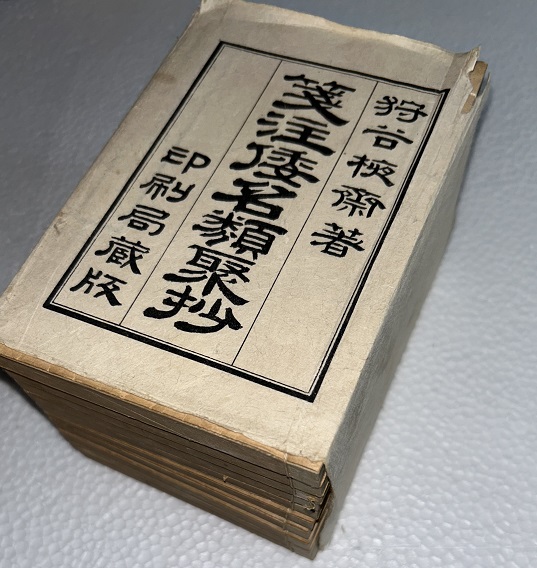 狩谷棭齋著
箋注倭名類聚抄
印刷局蔵版